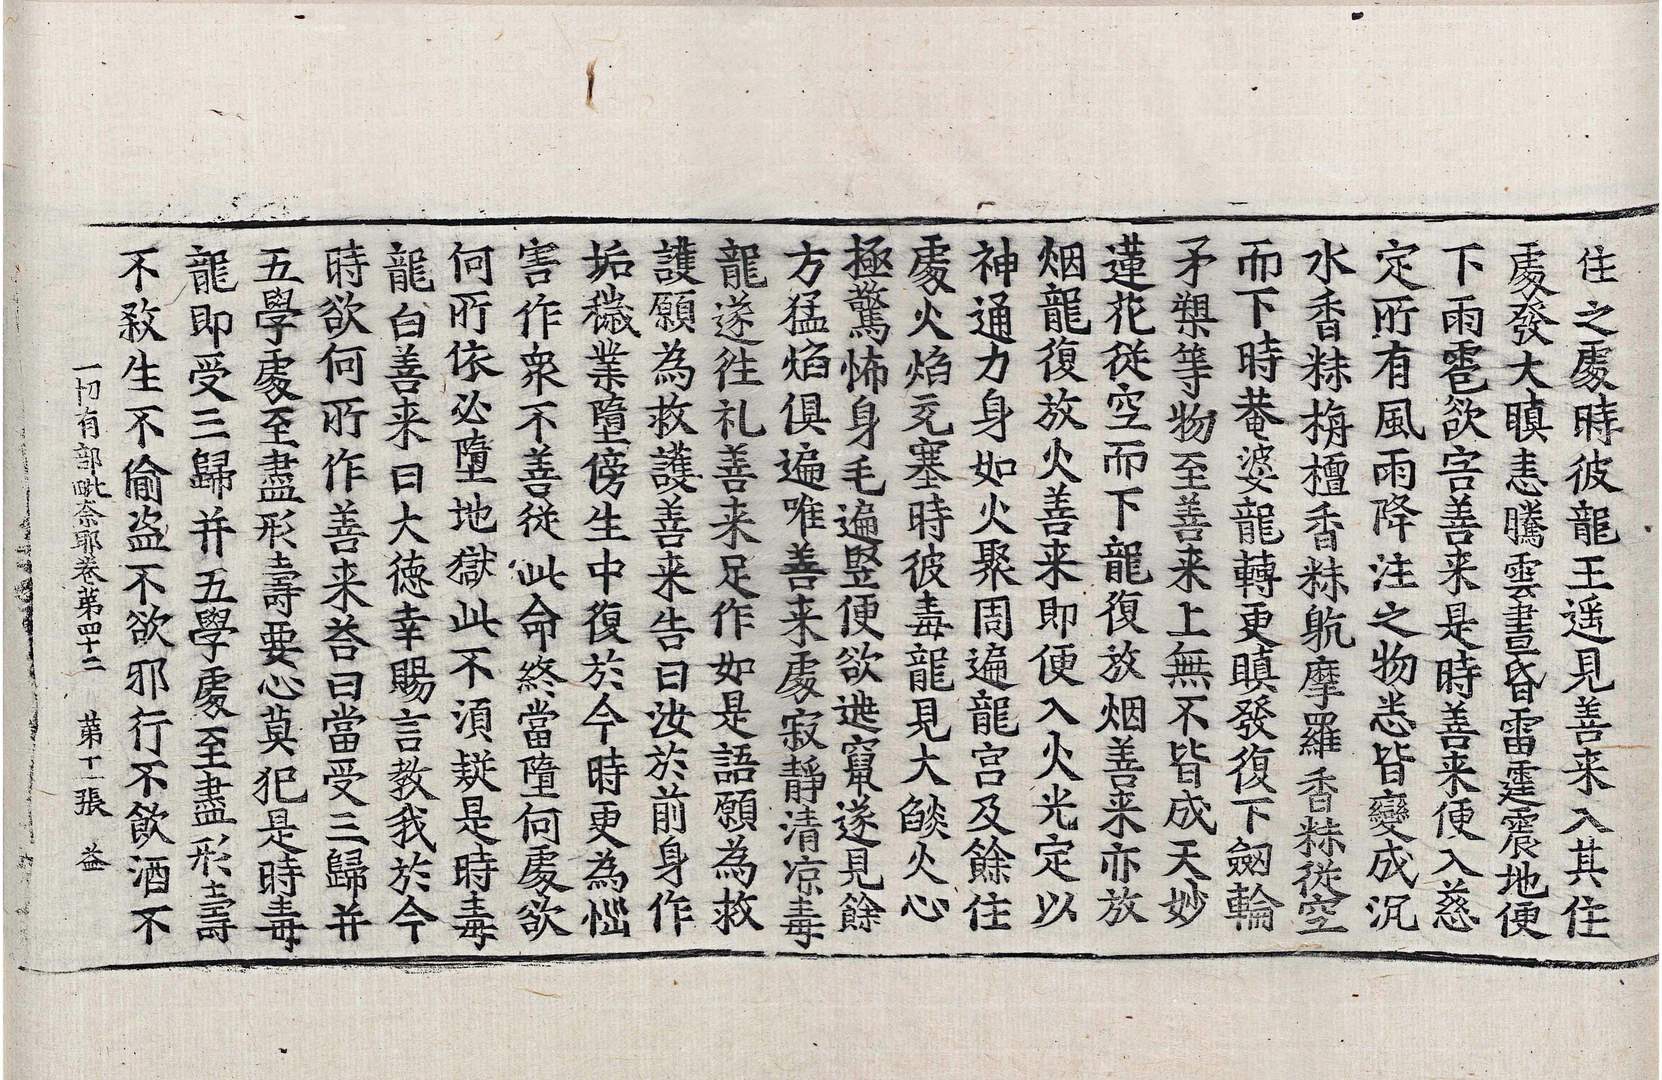 住之處時彼龍王遥見善来入其住
處發大瞋恚騰雲晝昏雷霆震地便
下雨雹欲害善来是時善来便入慈
定所有風雨降注之物悉皆變成沉
水香粖栴檀香粖躭摩羅香粖從空
而下時菴婆龍轉更瞋發復下劒輪
矛槊等物至善来上無不皆成天妙
蓮花從空而下龍復放烟善来亦放
烟龍復放火善来即便入火光定以
神通力身如火聚周遍龍宫及餘住
處火焰充塞時彼毒龍見大燄火心
極驚怖身毛遍竪便欲逃竄遂見餘
方猛焰俱遍唯善来處寂靜清凉毒
龍遂往礼善来足作如是語願為救
護願為救護善来告曰汝於前身作
垢穢業墮傍生中復於今時更為惱
害作衆不善従此命終當墮何處欲
何所依必墮地獄此不須疑是時毒
龍白善来曰大德幸賜言教我於今
時欲何所作善来荅曰當受三歸并
五學處至盡形壽要心莫犯是時毒
龍即受三歸并五學處至盡形壽
不敎生不偷盗不欲邪行不飲酒不
一切有部毗奈耶卷第四十二 第十一張 益